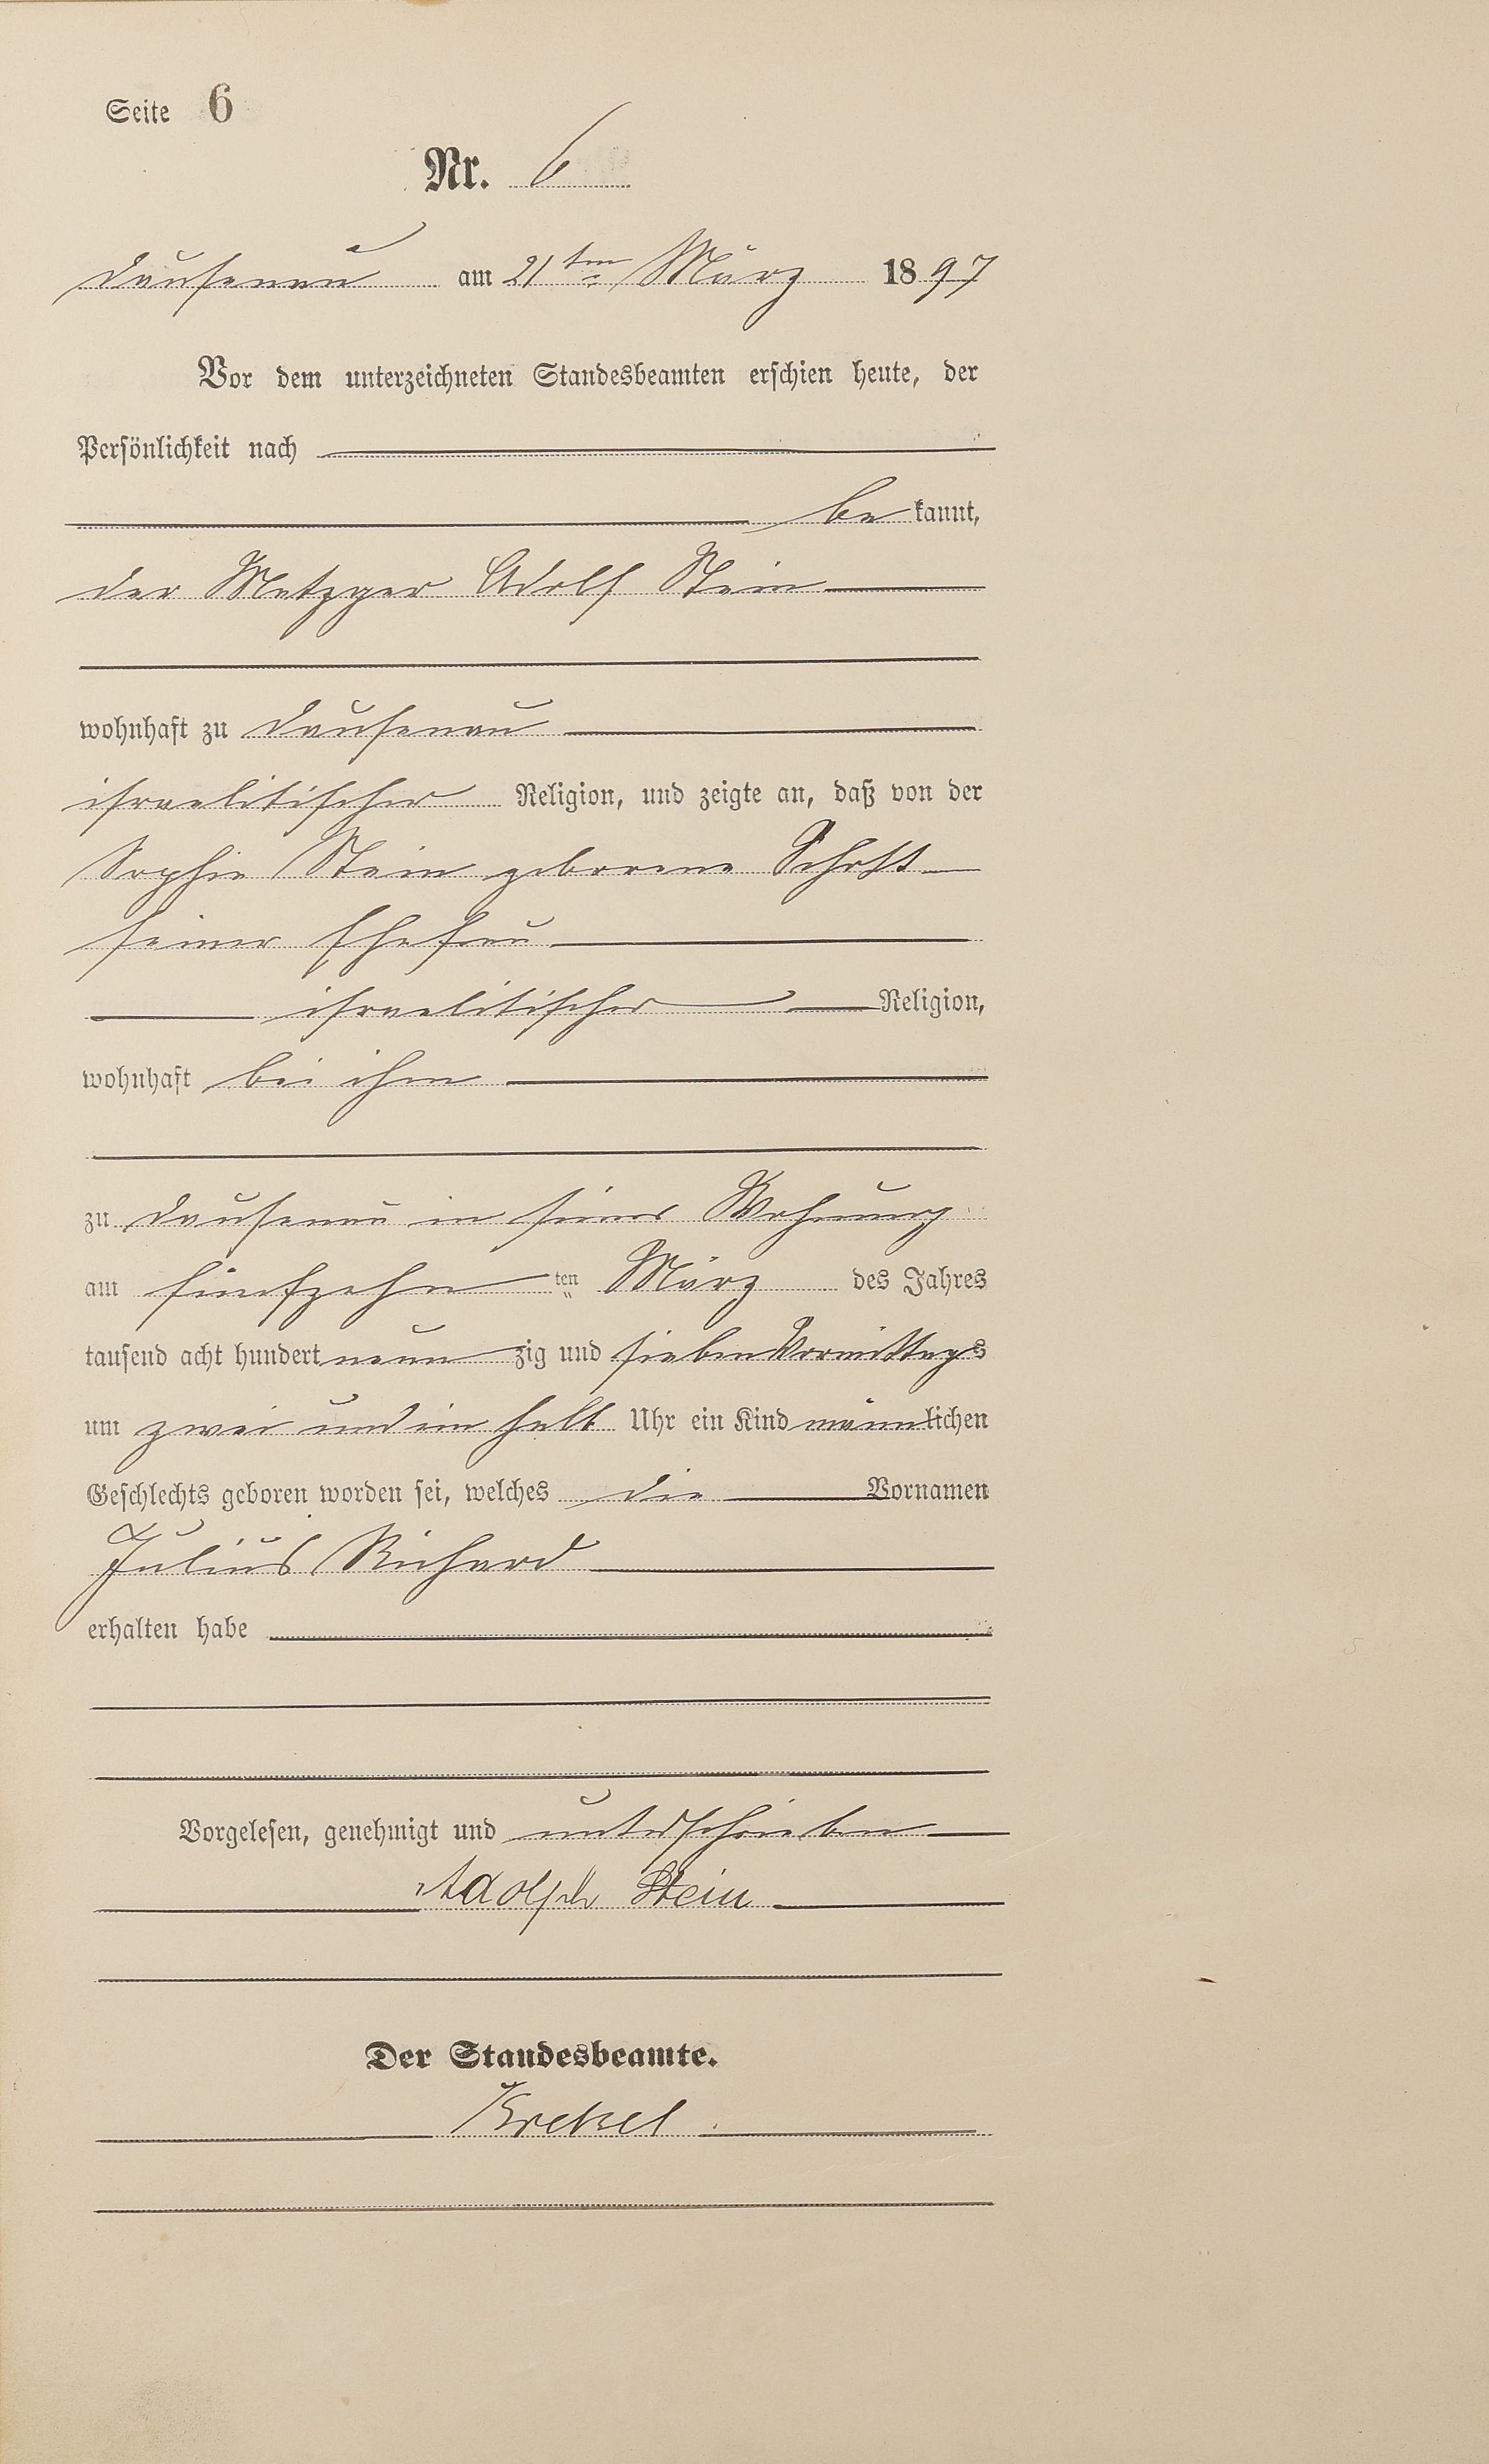 Seite 6
Nr. 6
Dausenau am 21ten März 1897
Vor dem unterzeichneten Standesbeamten erschien heute, der
Persönlichkeit nach
bekannt,
der Metzger Adolf Stein
wohnhaft zu Dausenau
israelitischer Religion, und zeigte an, daß von der
Sophie Stein geborene
seiner Ehefrau
israelitischer Religion,
wohnhaft bei ihm
zu Dausenau in seiner Wohnung
am fünfzehnten März des Jahres
tausend acht hundert neunzig und sieben Vormittags
um zwei und ein halb Uhr ein Kind männlichen
Geschlechts geboren worden sei, welches die Vornamen
Julius Richard
erhalten habe
Vorgelesen, genehmigt und unterschrieben
Adolph Stein
Der Standesbeamte.